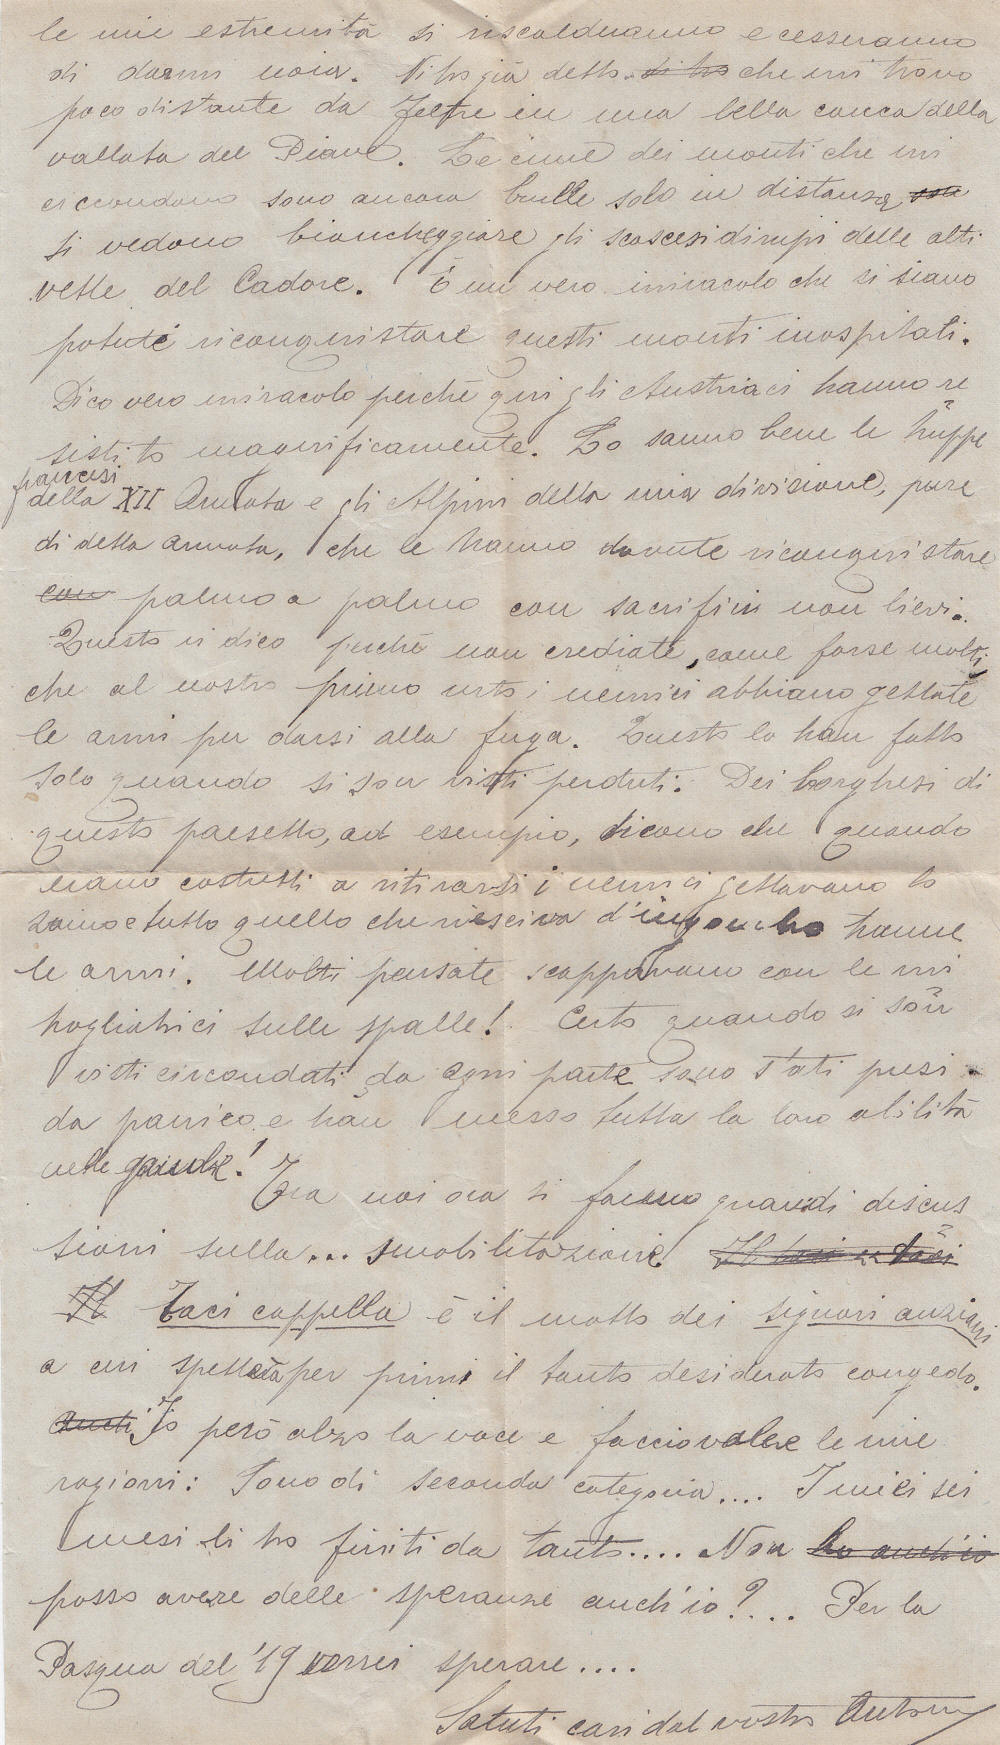 le mie estremità si riscalderanno e cesseranno
di darmi noia. Vi ho già detto di ho che mi trovo
poco distante da Feltre in una bella conca della
vallata del Piave. Le cime dei monti che mi
circondano sono ancora brulle solo in distanza son
si vedono biancheggiare gli scoscesi dirupi delle alti
vette del Cadore. È un vero miracolo che si siano
potute riconquistare questi monti inospitali.
Dico vero miracolo perchè qui gli Austriaci hanno re
sistito magnificamente. Lo sanno bene le truppe
francesi
della XII Armata e gli Alpini della mia divisione, pure
di detta armata, che le hanno dovute riconquistare
con palmo a palmo con sacrifici non lievi.
Questo vi dico perchè non crediate, come forse molti,
che al nostro primo urto i nemici abbiano gettate
le armi per darsi alla fuga. Questo lo han fatto
solo quando si son visti perduti. Dei borghesi di
questo paesetto, ad esempio, dicono che quando
erano costretti a ritirarsi i nemici gettavano lo
zaino e tutto quello che riesciva d'ingombro tranne
le armi. Molti pensate scappavano con le mi
tragliatrici sulle spalle! Certo quando si son
visti circondati da ogni parte sono stati presi
da panico e han messo tutta la loro abilità
nelle gambe!
Tra noi ora si fanno grandi discus
sioni sulla... smobilitazione.
Il Taci cappella è il motto dei signori anziani
a cui spetterà per primi il tanto desiderato congedo.
Io però alzo la voce e faccio valere le mie
ragioni: Sono di seconda categoria.... I miei sei
mesi li ho finiti da tanto.... Non ho anch'io
posso avere delle speranze anch'io?... Per la
Pasqua del '19 vorrei sperare....
Saluti cari dal vostro Antonio